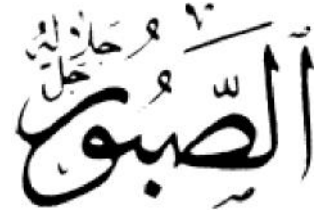 الصَّبُورُ
جَلَّ جَلَالُهُ